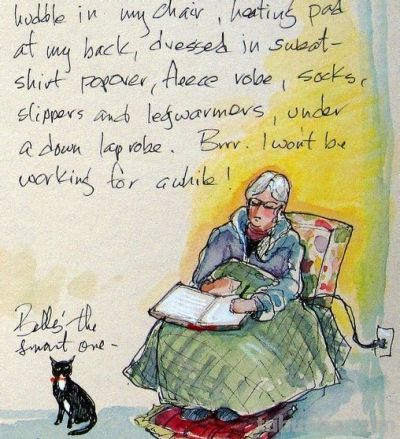 huddle in my chair, heating pad
at my back, dressed in sweat-
shirt popover, fleece robe, socks,
slippers and legwarmers, under
a down laprobe. Brrr. I won't be
working for awhile!
Belle's the
smart one-